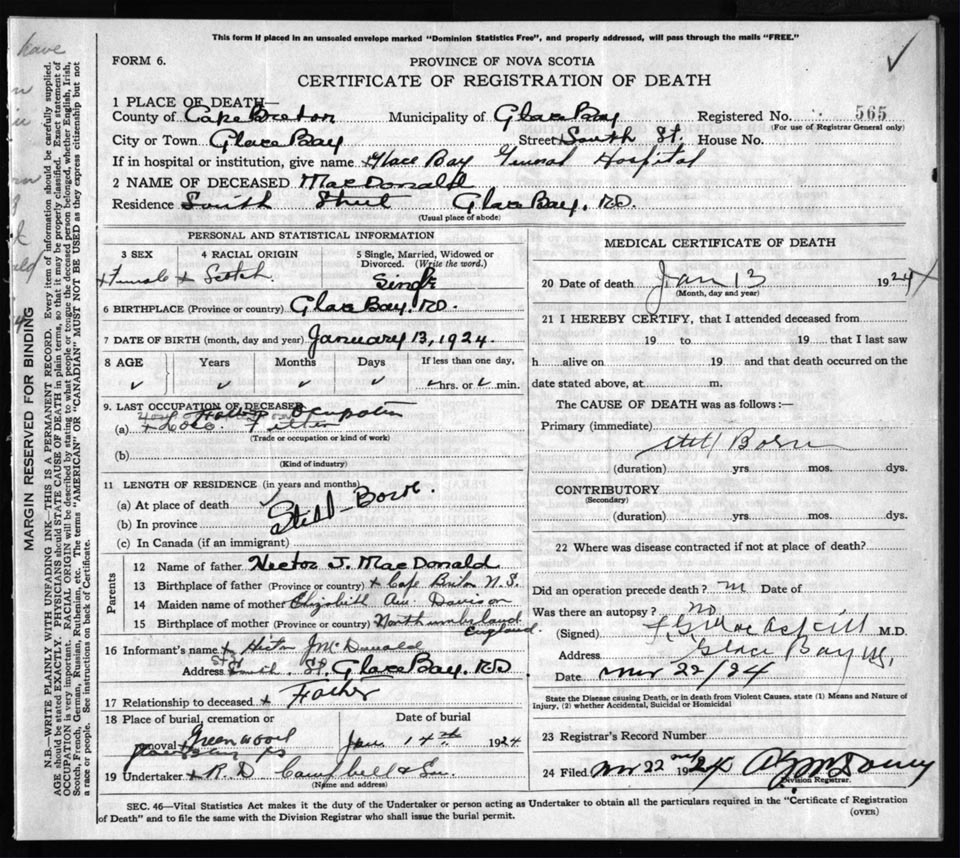 This form if placed in an unsealed envelope marked "Dominion Statistics Free", and properly addressed, will pass through the mails "FREE."
FORM 6.
PROVINCE OF NOVA SCOTIA
CERTIFICATE OF REGISTRATION OF DEATH
1 PLACE OF DEATH—
County of Cape Breton Municipality of Glace Bay Registered No. 565
(For use of Registrar General only)
City or Town Glace Bay Street South St. House No.
If in hospital or institution, give name Glace Bay General Hospital
2 NAME OF DECEASED MacDonald
Residence South Street Glace Bay.
(Usual place of abode)
PERSONAL AND STATISTICAL INFORMATION
3 SEX Female
4 RACIAL ORIGIN Scotch
5 Single, Married, Widowed or Divorced. (Write the word.) Single
6 BIRTHPLACE (Province or country) Glace Bay.
7 DATE OF BIRTH (month, day and year) January 13, 1924.
8 AGE Years Months Days If less than one day, hrs. or min.
9. LAST OCCUPATION OF DECEASED Fathers Occupation
(a) Loco. Fitter
(Trade or occupation or kind of work)
(b)
(Kind of industry)
11 LENGTH OF RESIDENCE (in years and months)
(a) At place of death Still-Born.
(b) In province
(c) In Canada (if an immigrant)
Parents
12 Name of father Hector J. MacDonald
13 Birthplace of father (Province or country) Cape Breton N.S.
14 Maiden name of mother Elizabeth Ann Davison
15 Birthplace of mother (Province or country) Northumberland England.
16 Informant's name Hector J McDonald
Address South St. Glace Bay.
17 Relationship to deceased Father
18 Place of burial, cremation or removal Greenwood
Date of burial Jan. 14th 1924
19 Undertaker R. D Campbell & Son.
(Name and address)
MEDICAL CERTIFICATE OF DEATH
20 Date of death Jan 13 1924
(Month, day and year)
21 I HEREBY CERTIFY, that I attended deceased from
19 to 19 that I last saw
h alive on 19 and that death occurred on the
date stated above, at m.
The CAUSE OF DEATH was as follows:—
Primary (immediate)
Still Born
(duration) yrs. mos. dys.
CONTRIBUTORY
(Secondary)
(duration) yrs. mos. dys.
22 Where was disease contracted if not at place of death?
Did an operation precede death? Date of
Was there an autopsy? no
(Signed) MacAskill M.D.
Address Glace Bay
Date 22/24
State the Disease causing Death, or in death from Violent Causes, state (1) Means and Nature of
Injury, (2) whether Accidental, Suicidal or Homicidal
23 Registrar's Record Number
24 Filed 22 1924
Division Registrar.
SEC. 46—Vital Statistics Act makes it the duty of the Undertaker or person acting as Undertaker to obtain all the particulars required in the "Certificate of Registration
of Death" and to file the same with the Division Registrar who shall issue the burial permit.
(OVER)
MARGIN RESERVED FOR BINDING
N.B.—WRITE PLAINLY WITH UNFADING INK—THIS IS A PERMANENT RECORD. Every item of information should be carefully supplied.
AGE should be stated EXACTLY. PHYSICIANS should STATE CAUSE OF DEATH in plain terms, so that it may be properly classified. Exact statement of
OCCUPATION is very important. RACIAL ORIGIN will be described by stating to what people or tongue the deceased person belonged, whether English, Irish,
Scotch, French, German, Russian, Ruthenian, etc. The terms "AMERICAN" OR "CANADIAN" MUST NOT BE USED as they express citizenship but not
a race or people. See instructions on back of Certificate.